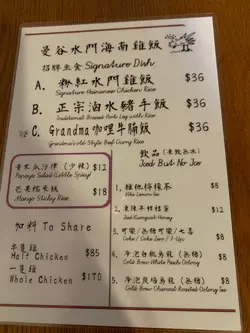 曼谷水門海南雞飯
招牌主食 Signature Dish
A. 粉紅水門雞飯 $36
Signature Hainanese Chicken Rice
B. 正宗滷水豬手飯 $36
Traditional Braised Pork Leg with Rice
C. Grandma咖哩牛腩飯 $36
Grandma's old style Beef Curry Rice
青木瓜沙律 (少辣) $12
Papaya Salad (Little Spicy)
芒果糯米飯 $18
Mango Sticky Rice
加料 To Share
半隻雞 $85
Half Chicken
一隻雞 $170
Whole Chicken
飲品 (走飲無冰)
Iced But No Ice
1. 維他檸檬茶 $8
Vita Lemon Tea
2. $8
Iced Kumquat Honey
3. 可樂/無糖可樂/七喜 $8
Coke / Coke Zero / 7-Up
4. 冷泡白桃烏龍 (無糖) $8
Cold Brew White Peach Oolong
5. 冷泡炭焙烏龍 (無糖) $8
Cold Brew Charcoal-Roasted Oolong Tea